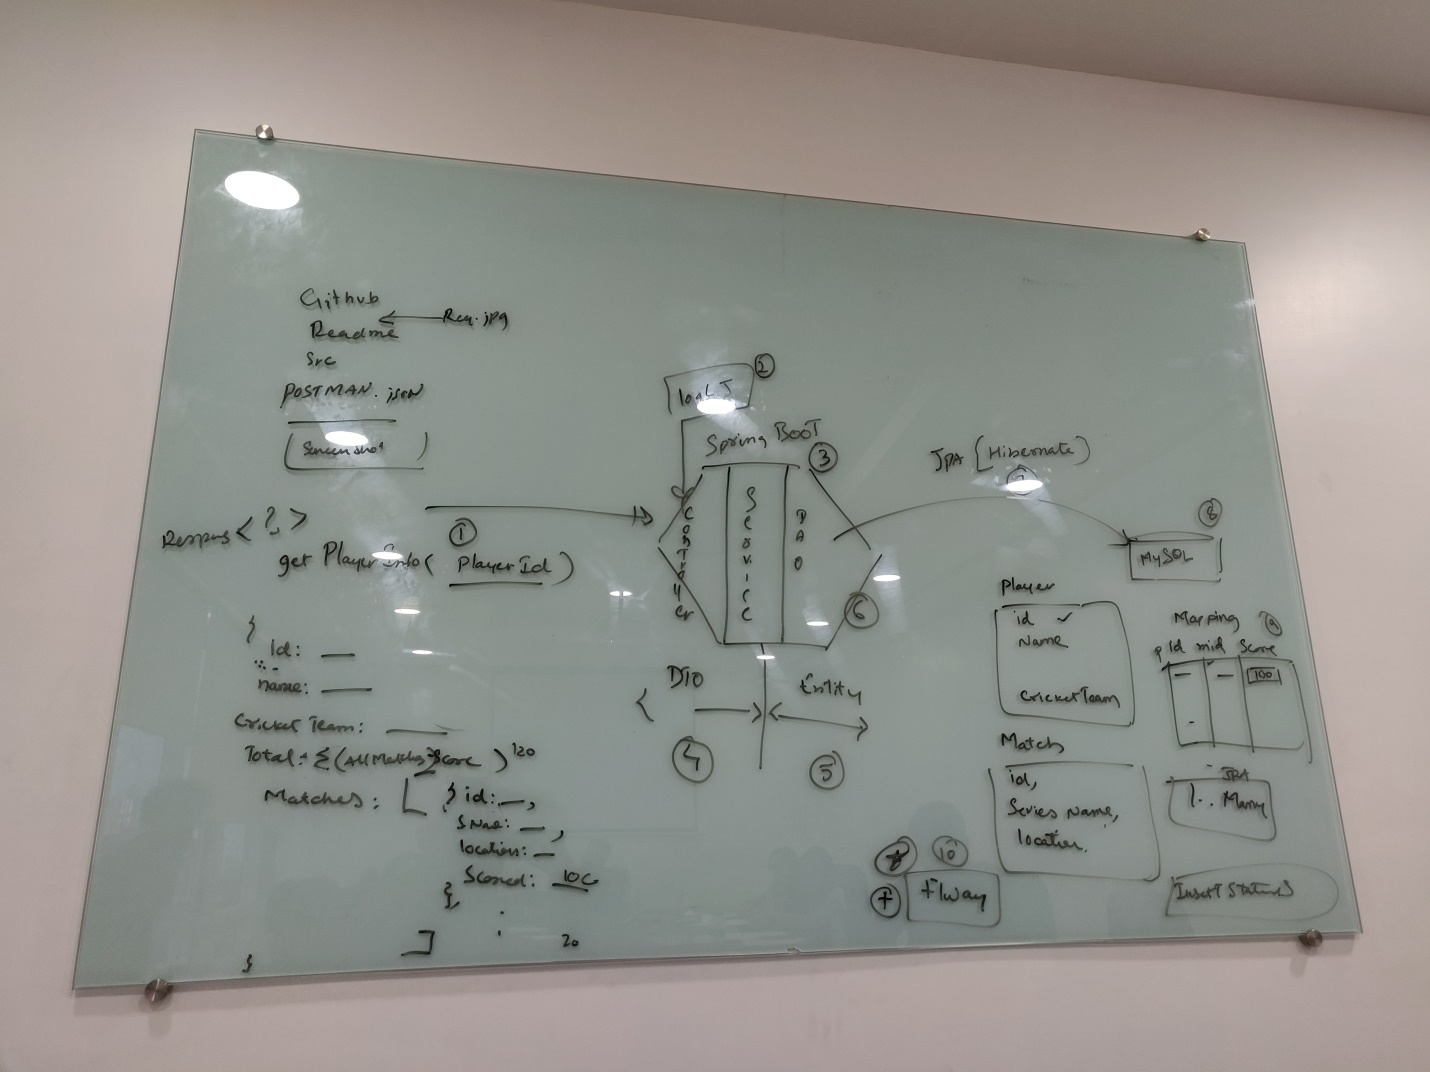 Github
Readme ← Req.jpg
Src
POSTMAN.json
(Screenshot)
Respns < ? >
get PlayerInfo( PlayerId )
1
{
Id: __
name: __
Cricket Team: __
Total: Σ(All Matches Score) 120
Matches: [ { id: __,
SName: __,
location: __
Scored: 100
},
]
20
}
2
log4J
Spring BOOT
3
Controller
Service
DAO
6
DTO
Entity
4
5
JPA (Hibernate)
7
8
MySQL
Player
id ✓
Name
CricketTeam
Mapping 9
pid mid Score
100
Match
id,
Series Name,
location.
JPA
1.. Many
10
+
Flway